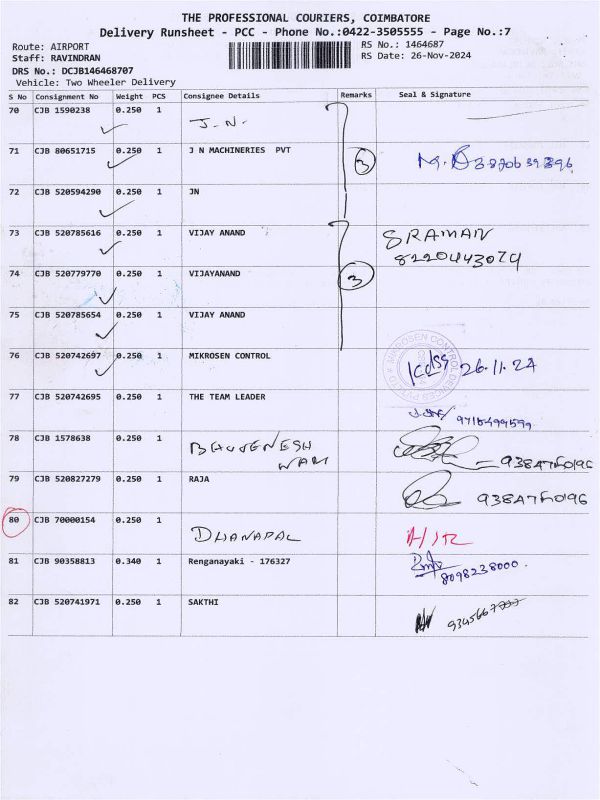 THE PROFESSIONAL COURIERS, COIMBATORE
Delivery Runsheet - PCC - Phone No.:0422-3505555 - Page No.:7
Route: AIRPORT
Staff: RAVINDRAN
DRS No.: DCJB146468707
Vehicle: Two Wheeler Delivery
RS No.: 1464687
RS Date: 26-Nov-2024
S No Consignment No Weight PCS Consignee Details Remarks Seal & Signature
70 CJB 1590238 0.250 1 J.N.
71 CJB 80651715 0.250 1 J N MACHINERIES PVT 3
72 CJB 520594290 0.250 1 JN
73 CJB 520785616 0.250 1 VIJAY ANAND SRAMAN
8220443079
74 CJB 520779770 0.250 1 VIJAYANAND 3
75 CJB 520785654 0.250 1 VIJAY ANAND
76 CJB 520742697 0.250 1 MIKROSEN CONTROL 26.11.24
77 CJB 520742695 0.250 1 THE TEAM LEADER
78 CJB 1578638 0.250 1 BHUVENESH
WARI
79 CJB 520827279 0.250 1 RAJA
80 CJB 70000154 0.250 1 DHANAPAL
81 CJB 90358813 0.340 1 Renganayaki - 176327 8098238000.
82 CJB 520741971 0.250 1 SAKTHI